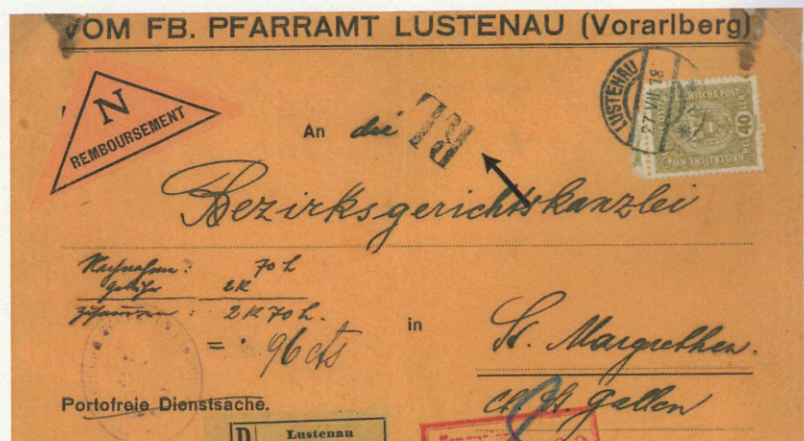 VOM FB. PFARRAMT LUSTENAU (Vorarlberg)
N
REMBOURSEMENT
LUSTENAU
27 VII 18
40
An die
Bezirksgerichtskanzlei
Nachnahme: 70 h
gebühr 2 K
zusammen: 2 K 70 h.
= 96 cts
in
St. Margrethen.
Portofreie Dienstsache.
Gallen
D
Lustenau